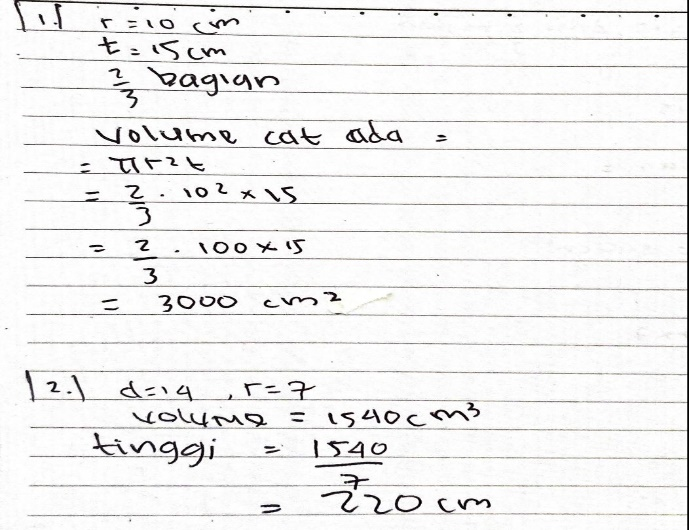 1. r = 10 cm
t = 15 cm
2/3 bagian
Volume cat ada =
= πr²t
= 2/3 . 10² × 15
= 2/3 . 100 × 15
= 3000 cm²
2. d=14 , r=7
volume = 1540 cm³
tinggi = 1540/7
= 220 cm